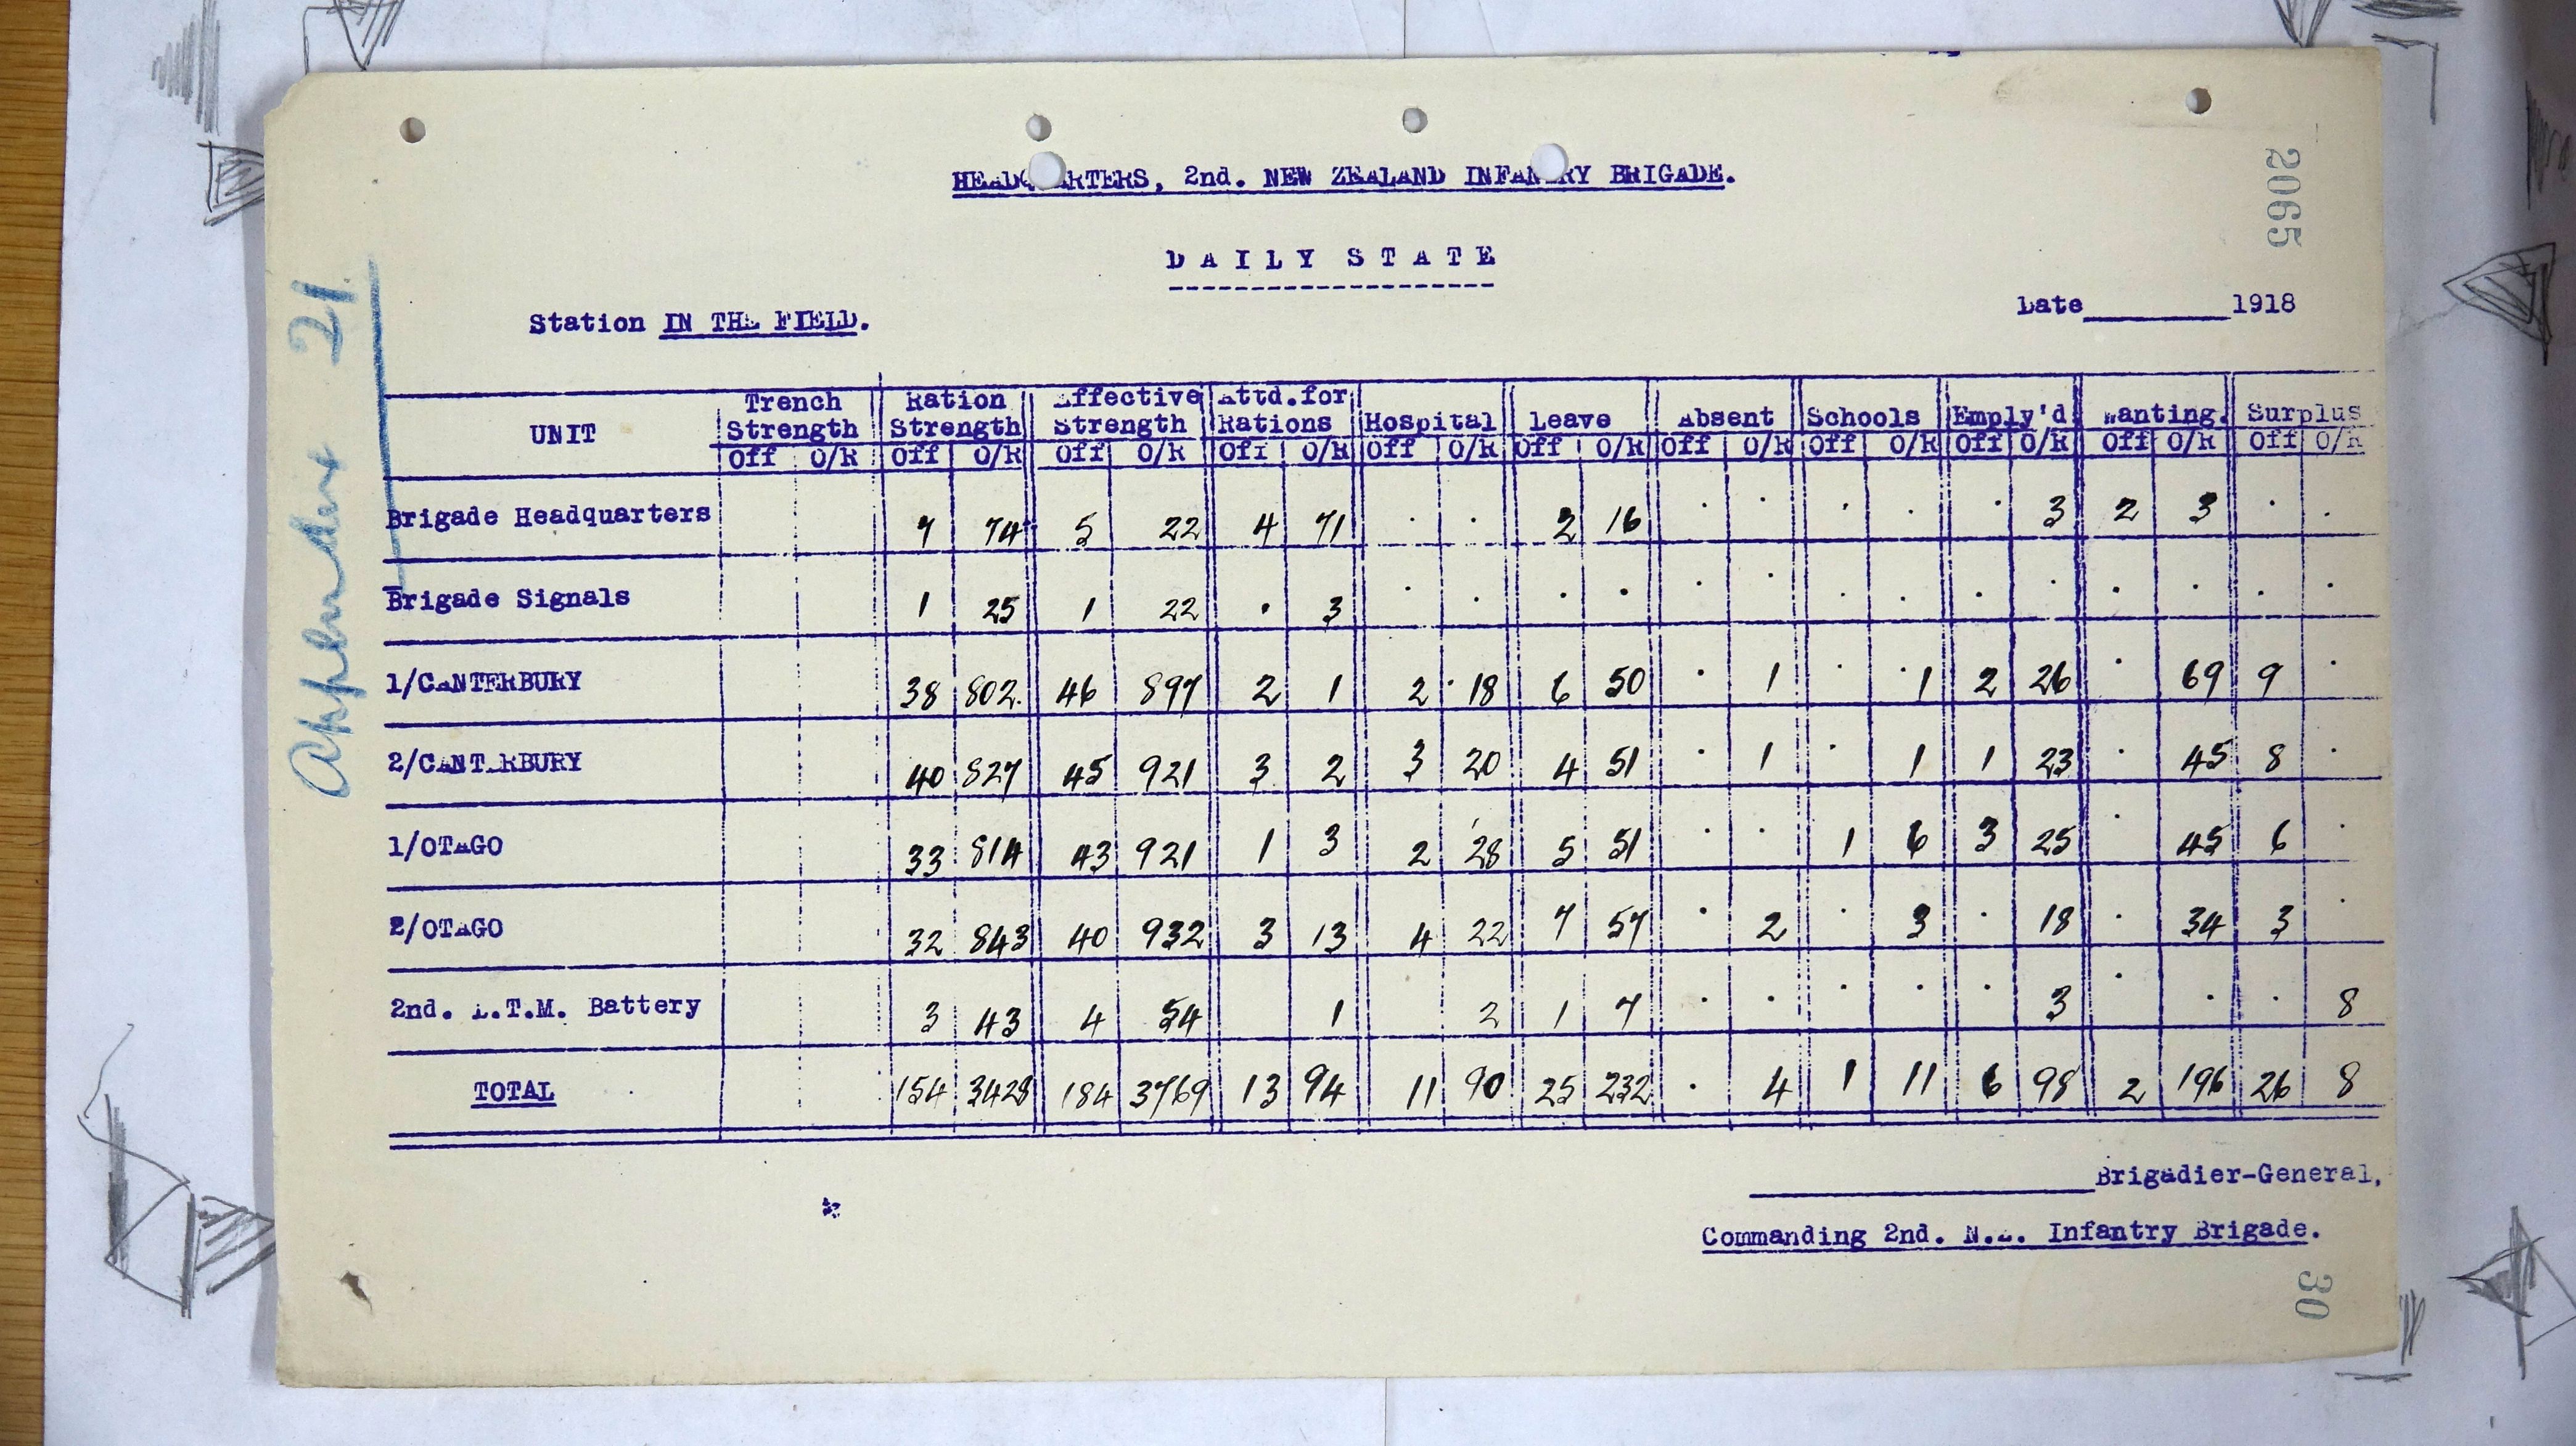 HEADQUARTERS, 2nd. NEW ZEALAND INFANTRY BRIGADE.
2065
DAILY STATE
Station IN THE FIELD.
Date 1918
Appendix 21.
UNIT Trench Strength Ration Strength Effective Strength Attd.for Rations Hospital Leave Absent Schools Emply'd Wanting. Surplus
Off O/R Off O/R Off O/R Off O/R Off O/R Off O/R Off O/R Off O/R Off O/R Off O/R Off O/R
Brigade Headquarters 7 74 5 22 4 71 . . 2 16 . . . . . 3 2 3 . .
Brigade Signals 1 25 1 22 . 3 . . . . . . . . . . . . . .
1/CANTERBURY 38 802. 46 897 2 1 2 18 6 50 . 1 . 1 2 26 . 69 9 .
2/CANTERBURY 40 827 45 921 3 2 3 20 4 51 . 1 . 1 1 23 . 45 8 .
1/OTAGO 33 814 43 921 1 3 2 28 5 51 . . 1 6 3 25 . 45 6 .
2/OTAGO 32 843 40 932 3 13 4 22 7 57 . 2 . 3 . 18 . 34 3 .
2nd. L.T.M. Battery 3 43 4 54 1 2 1 7 . . . . . 3 . . . 8
TOTAL 154 3428 184 3769 13 94 11 90 25 232 . 4 1 11 6 98 2 196 26 8
Brigadier-General,
Commanding 2nd. N.Z. Infantry Brigade.
30